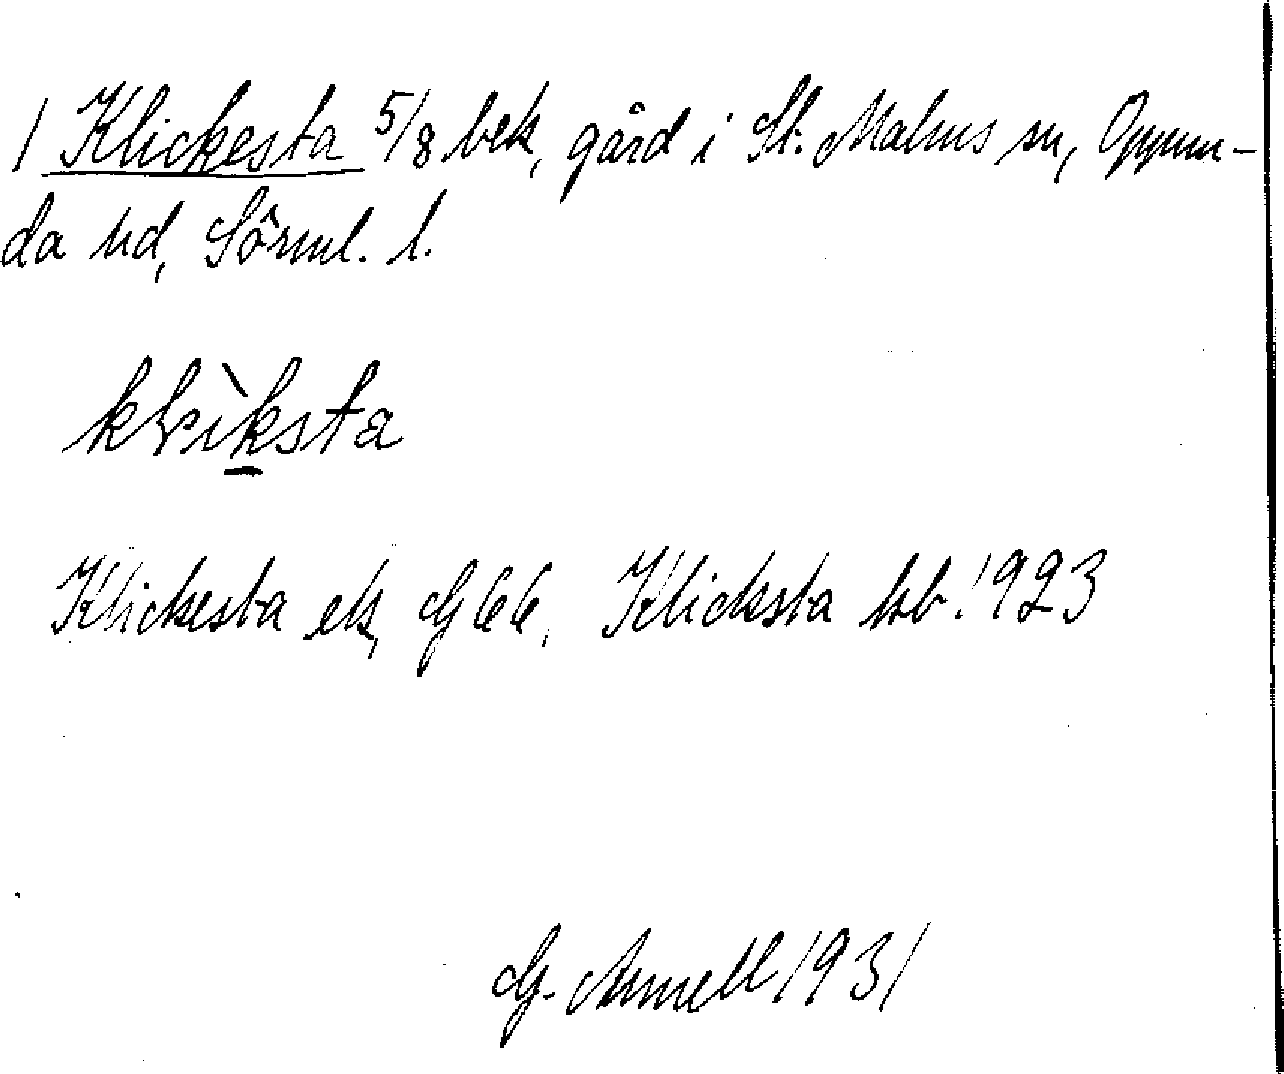 1 Klickesta 5/8 bek, gård i St. Malms sn, Oppun-
da hd, Sörml. l.
klìksta
Klickesta ek, G 66, Klicksta kb. 1923
G. Arnell 1931